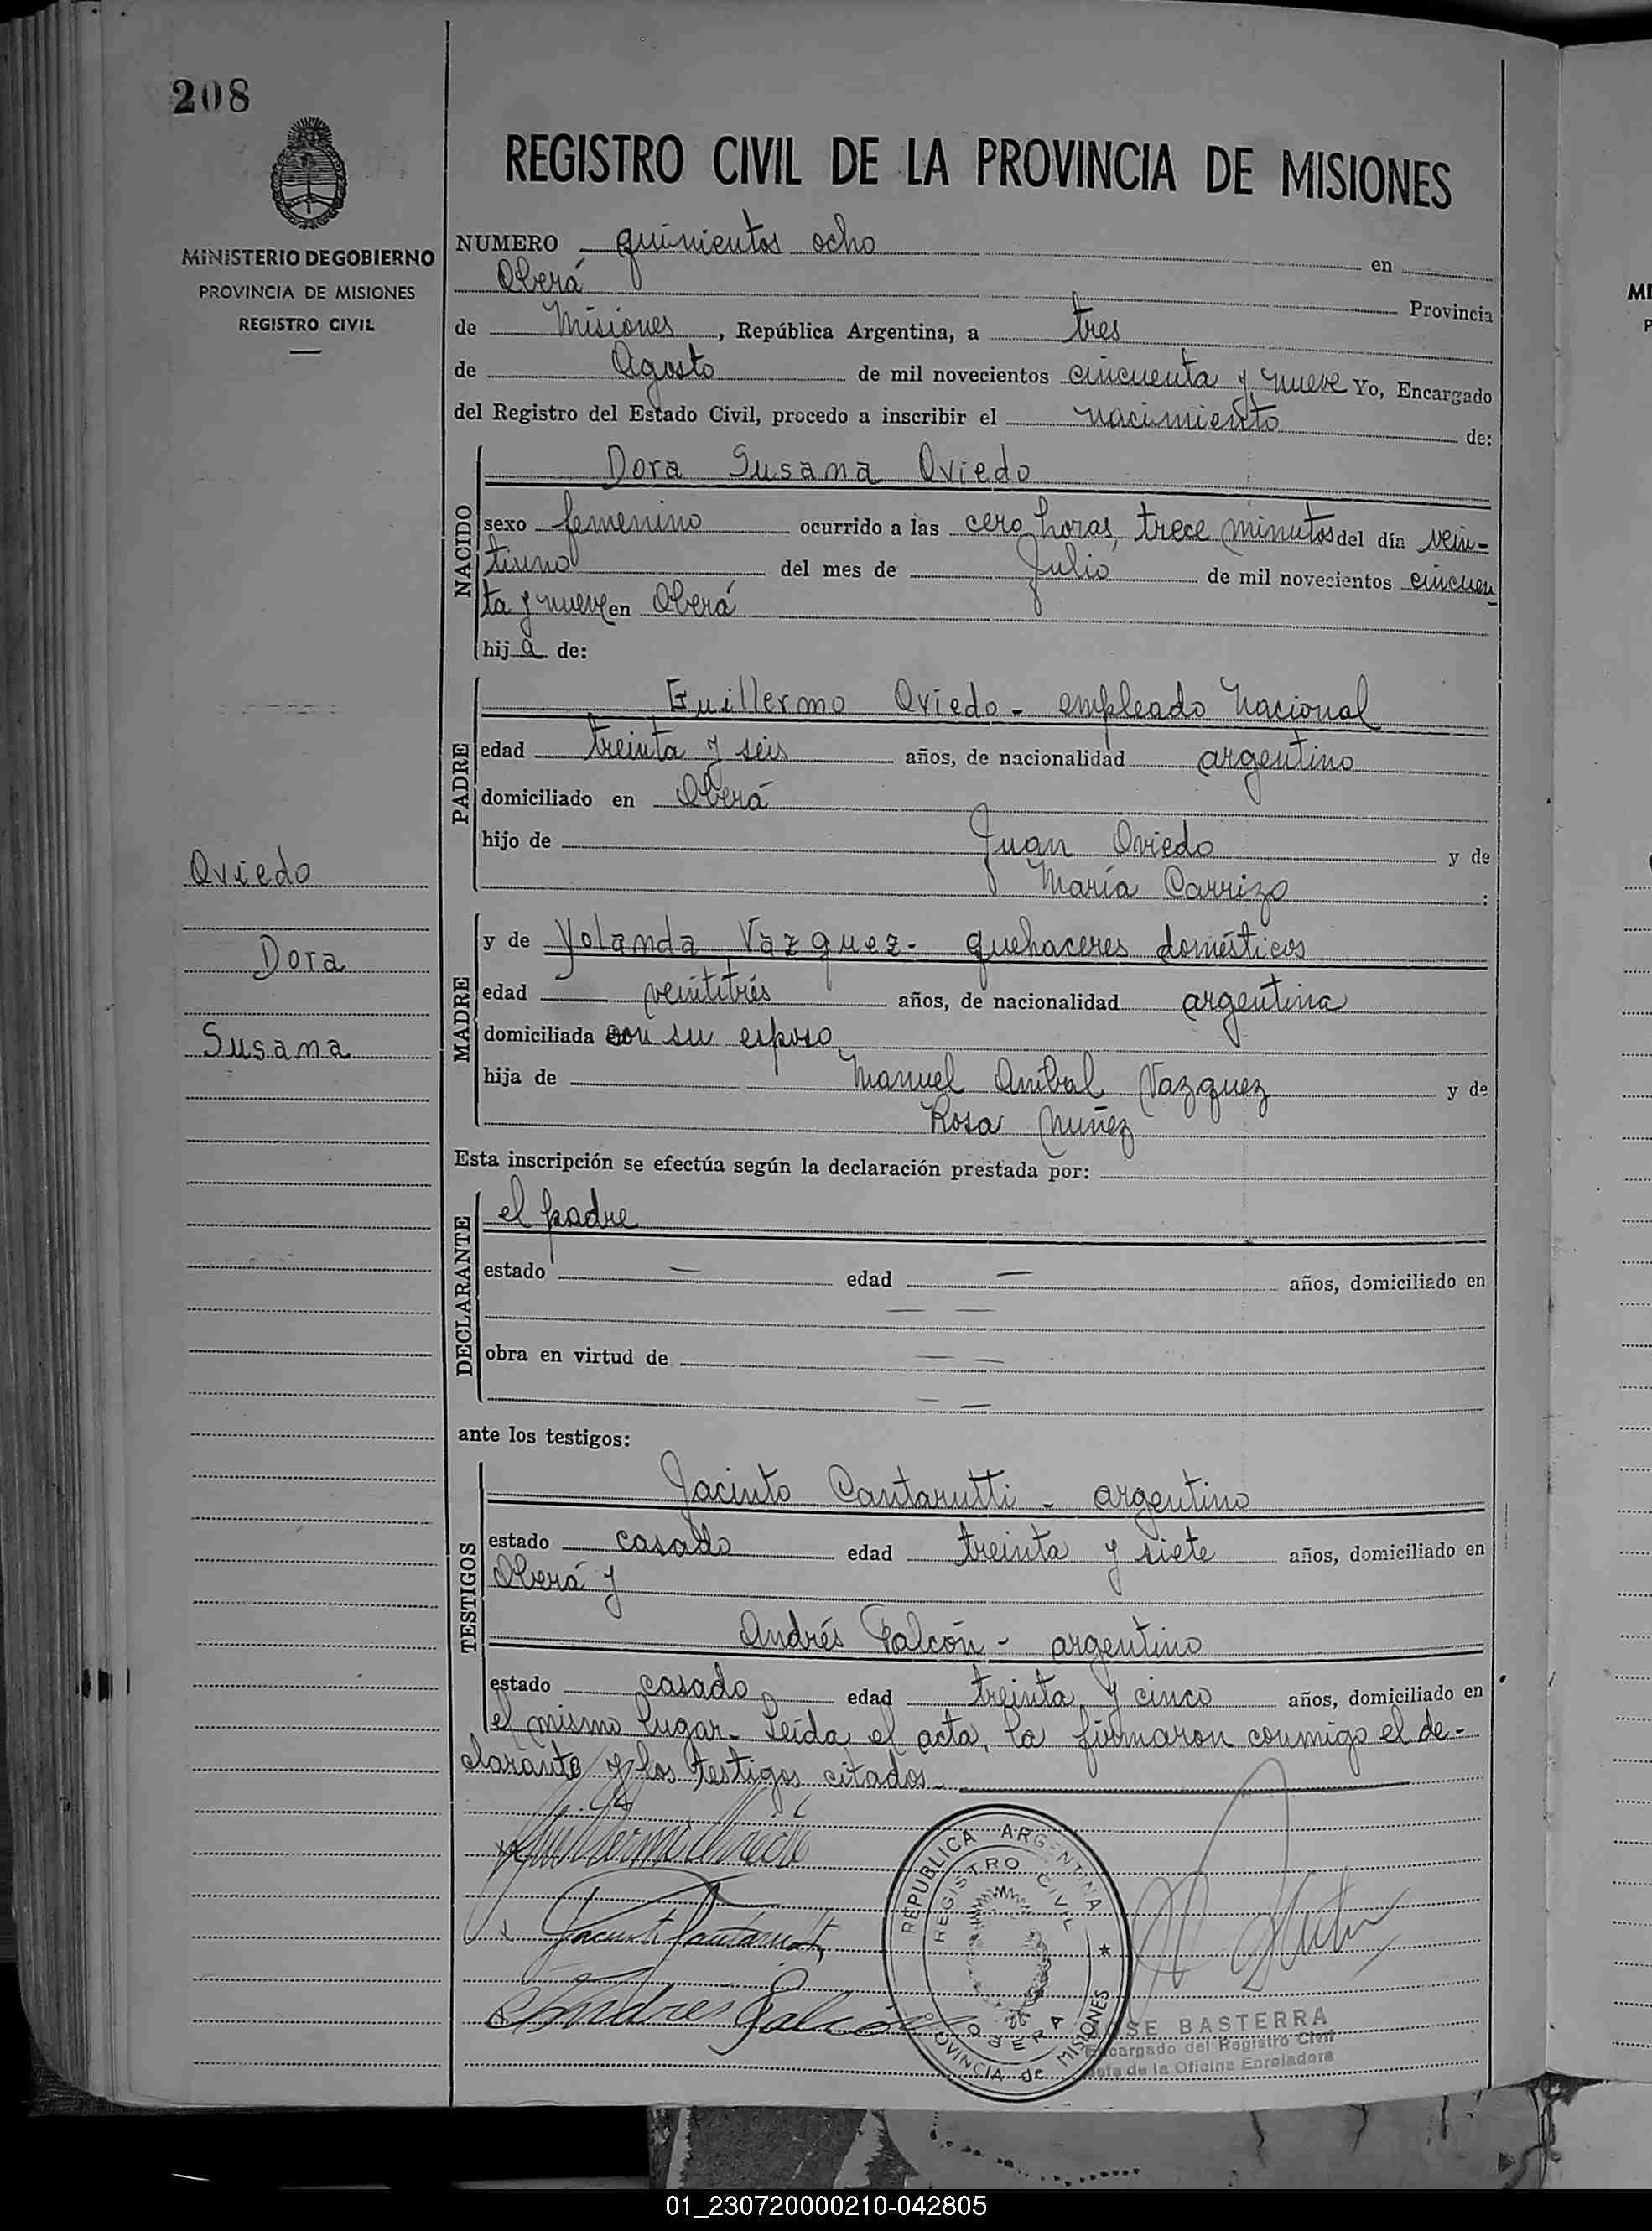 208
MINISTERIO DE GOBIERNO
PROVINCIA DE MISIONES
REGISTRO CIVIL
Oviedo
Dora
Susana
REGISTRO CIVIL DE LA PROVINCIA DE MISIONES
NUMERO quinientos ocho en
Oberá Provincia
de Misiones, República Argentina, a tres
de Agosto de mil novecientos cincuenta y nueve Yo, Encargado
del Registro del Estado Civil, procedo a inscribir el nacimiento de:
NACIDO
Dora Susana Oviedo
sexo femenino ocurrido a las cero horas, trece minutos del día vein-
tiuno del mes de Julio de mil novecientos cincuen
ta y nueve en Oberá
hija de:
PADRE
Guillermo Oviedo - empleado Nacional
edad treinta y seis años, de nacionalidad argentino
domiciliado en Oberá
hijo de Juan Oviedo y de
María Carrizo :
MADRE
y de Yolanda Vazquez - quehaceres domésticos
edad veintitrés años, de nacionalidad argentina
domiciliada con su esposo
hija de Manuel Anibal Vazquez y de
Rosa Nuñez
Esta inscripción se efectúa según la declaración prestada por:
DECLARANTE
el padre
estado — edad — años, domiciliado en
— —
obra en virtud de — —
— —
ante los testigos:
TESTIGOS
Jacinto Cantarutti - argentino
estado casado edad treinta y siete años, domiciliado en
Oberá y
Andrés Falcón - argentino
estado casado edad treinta y cinco años, domiciliado en
el mismo lugar - Leída el acta, la firmaron conmigo el de-
clarante y los testigos citados -
Guillermo Oviedo
Jacinto Cantarutti
Andres Falcón
REPUBLICA ARGENTINA
REGISTRO CIVIL
OBERA
PROVINCIA de MISIONES
SE BASTERRA
Encargado del Registro Civil
de la Oficina Enroladora
01_230720000210-042805